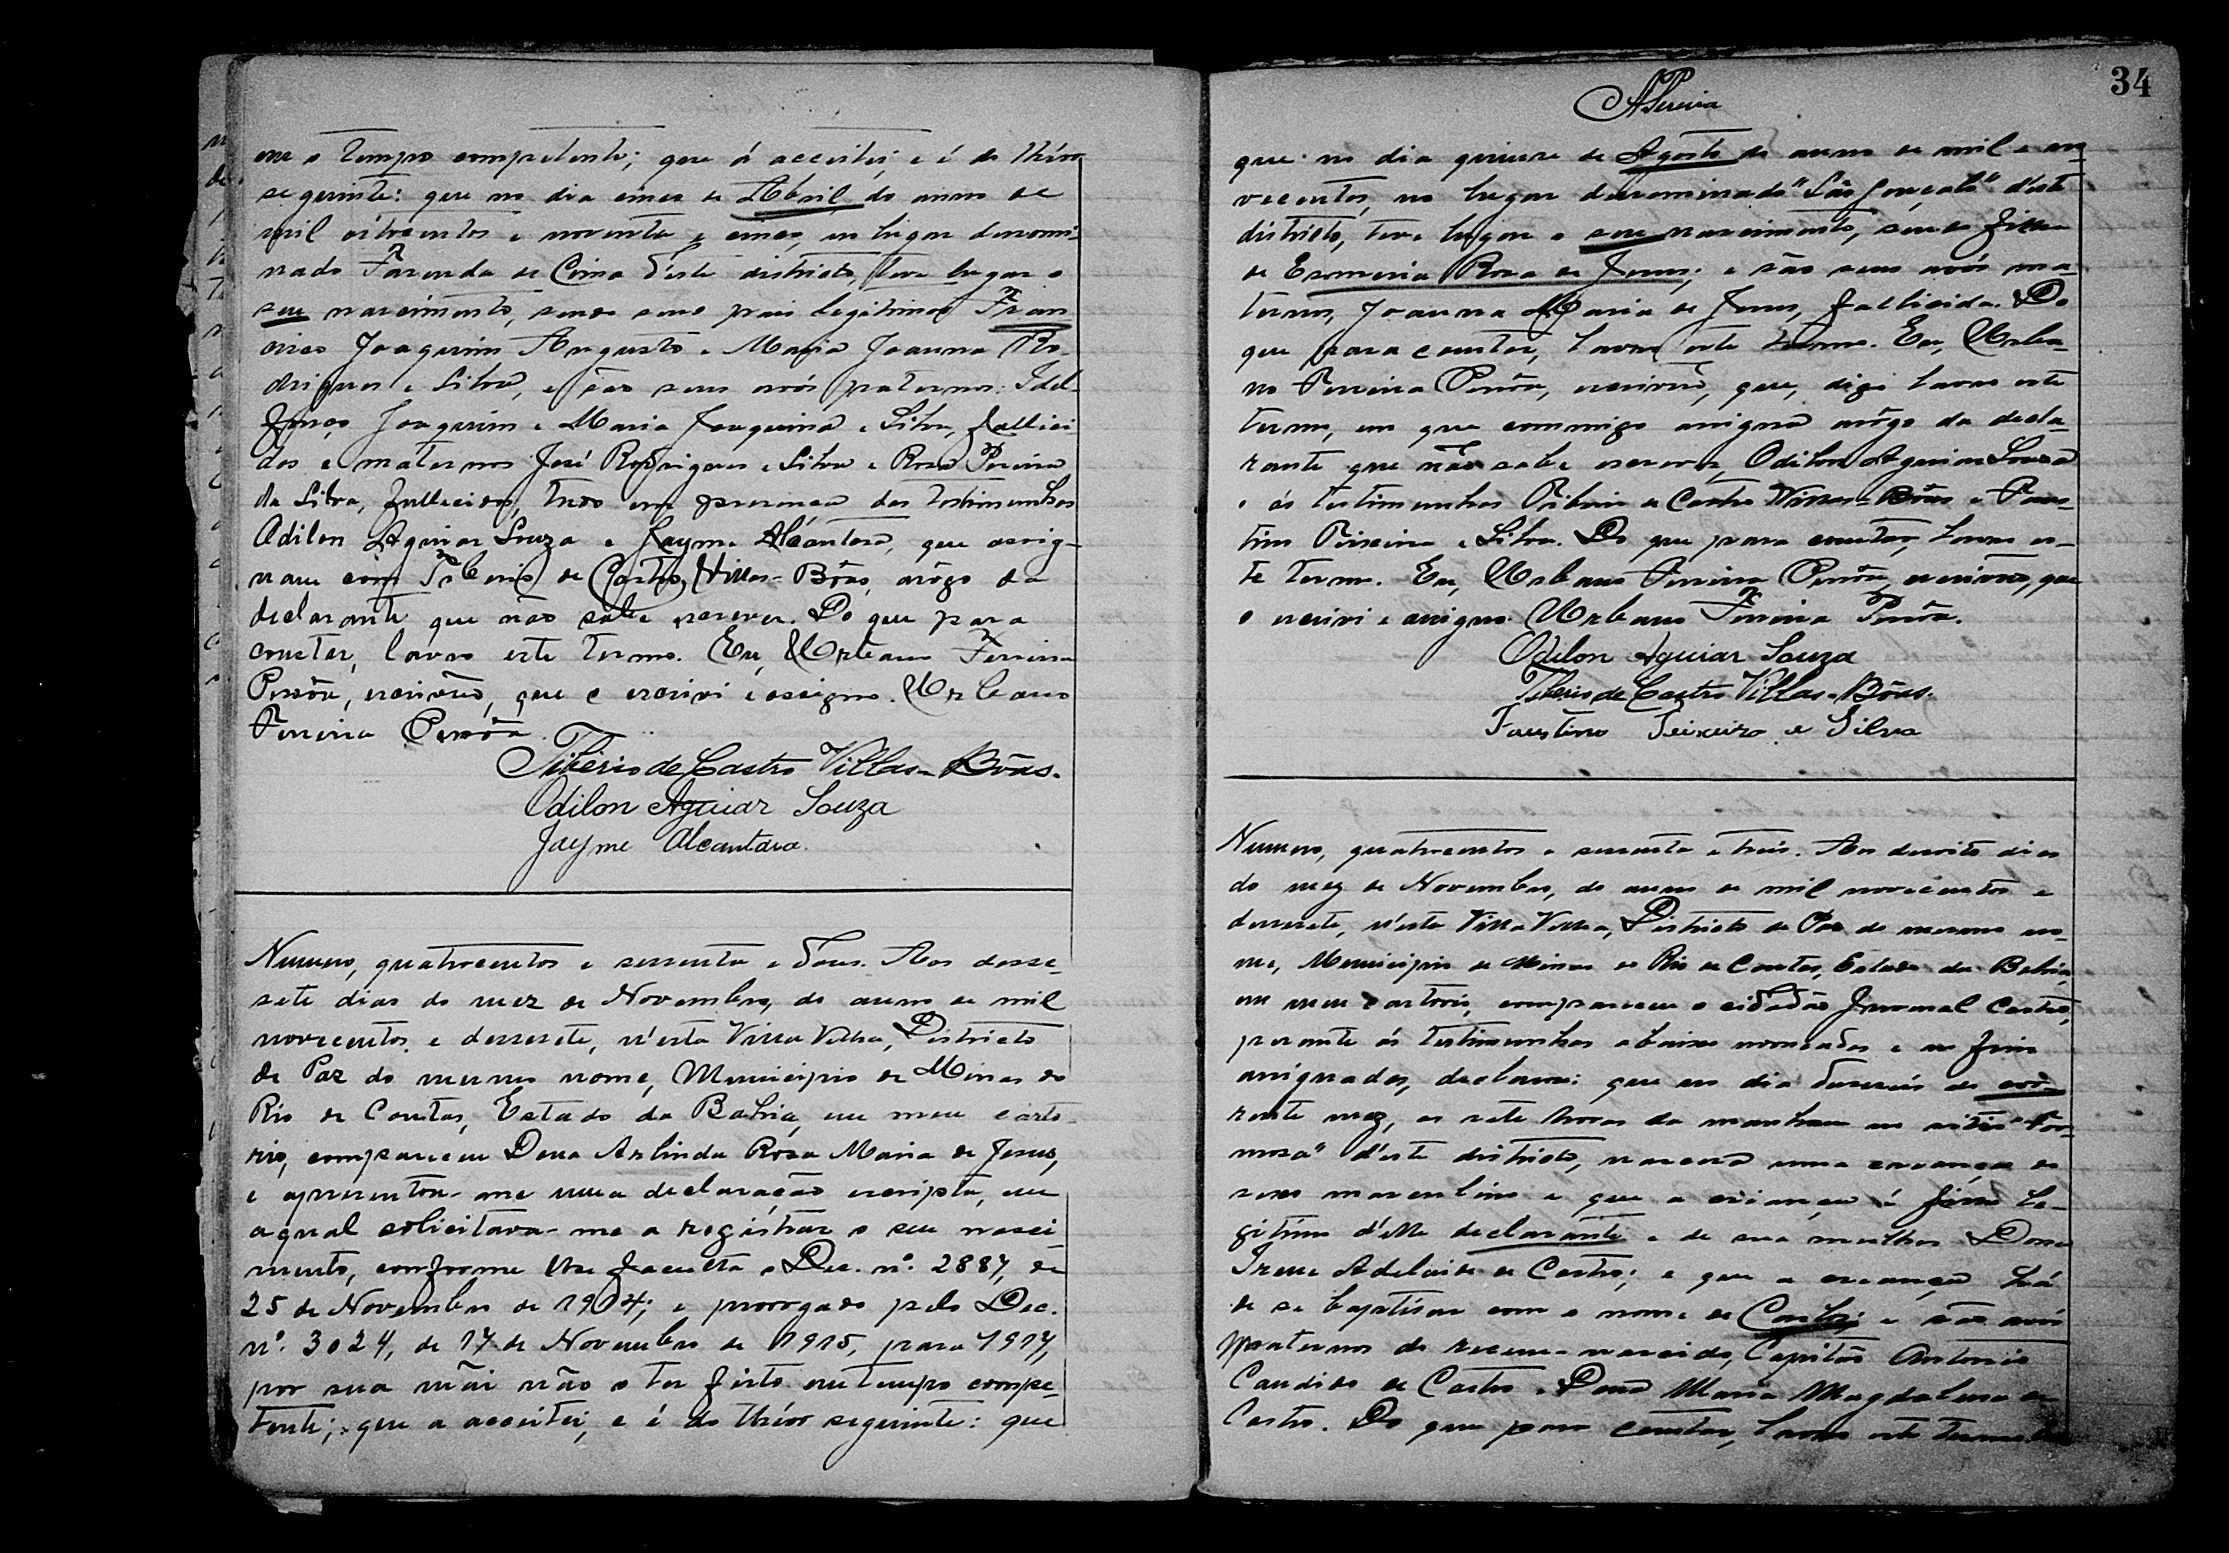 em o tempo competente; que á acceitei, e é do théor
seguinte: que no dia cinco de Abril do anno de
mil oitocentos e noventa e cinco, em lugar denomi-
nado Fazenda de Cima d'este districto, teve lugar o
seu nascimento, sendo seus pais legitimos Fran
cisco Joaquim Augusto e Maria Joanna Ro-
drigues e Silva, e são seus avós paternos: Idel-
fonço Joaquim e Maria Joaquina e Silva, falleci
dos e maternos José Rodrigues e Silva e Rosa Pereira
da Silva, fallecidos, tudo em presença das testimunhas
Odilon Aguiar Souza e Jayme Alcantara, que assig-
nam com Tiberio de Castro Villas-Bôas, arôgo da
declarante que não sabe escrever. Do que para
constar, lavro este termo. Eu, Urbano Ferreira
Pessôa, escrivão, que o escrivi e assigno. Urbano
Ferreira Pessôa
Tiberio de Castro Villas-Bôas.
Odilon Aguiar Souza
Jayme Alcantara.
Numero, quatrocentos e sessenta e dous. Aos desse-
sete dias do mez de Novembro, do anno de mil
novecentos e dessesete, n'esta Villa Velha, Districto
de Paz do mesmo nome, Municipio de Minas do
Rio de Contas, Estado da Bahia, em meu carto-
rio, compareceu Dona Arlinda Rosa Maria de Jesus,
e apresentou-me uma declaração escripta, em
aqual solicitava-me a registrar o seu nasci-
mento, conforme lhe faculta o Dec. nº. 2887, de
25 de Novembro de 1914; e prorogado pelo Dec.
nº. 3024, de 17 de Novembro de 1915, para 1917,
por sua mãi não o ter feito em tempo compe-
tente; que a acceitei, e é do théor seguinte: que
34
APereira
que no dia quinze de Agosto do anno de mil e no
vecentos, no lugar denominado "São Gonçalo" d'este
districto, teve lugar o seu nascimento, sendo filha
de Esmeria Rosa de Jesus; e são seus avós ma-
ternos, Joanna Maria de Jesus, fallicida. Do
que para constar, lavro este termo. Eu, Urba-
no Ferreira Pessôa, escrivão, que, digo lavro este
termo, em que commigo assigna arôgo da decla-
rante que não sabe escrever, Odilon Aguiar Souza
e ás testimunhas Tiberio de Castro Villas-Bôas e Faus-
tino Teixeira e Silva. Do que para constar, lavro es-
te termo. Eu, Urbano Ferreira Pessôa, escrivão, que
o escrivi e assigno. Urbano Ferreira Pessôa.
Odilon Aguiar Souza
Tiberio de Castro Villas-Bôas.
Faustino Teixeira e Silva
Numero, quatrocentos e sessenta e treis. Aos desoito dias
do mez de Novembro, do anno de mil novecentos e
dessesete, n'esta Villa Velha, Districto de Paz do mesmo no-
me, Municipio de Minas do Rio de Contas, Estado da Bahia,
em meu cartorio, compareceu o cidadão Juvenal Castro,
perante ás testimunhas abaixo nomeados e no fim
assignados, declarou: que no dia deseseis do cor
rente mez, as sete horas da manham no sitio "For-
mosa" d'este districto, nasceu uma creança do
sexo masculino e que a criança é filho le-
gitimo d'elle declarante e de sua mulher Dona
Irene Adelaide de Castro; e que a creança há
de se baptisar com o nome de Carlos; e são avós
paternos do recem-nascido, Capitão Antonio
Candido de Castro e Dona Maria Magdalena de
Castro. Do que para constar, lavro este termo